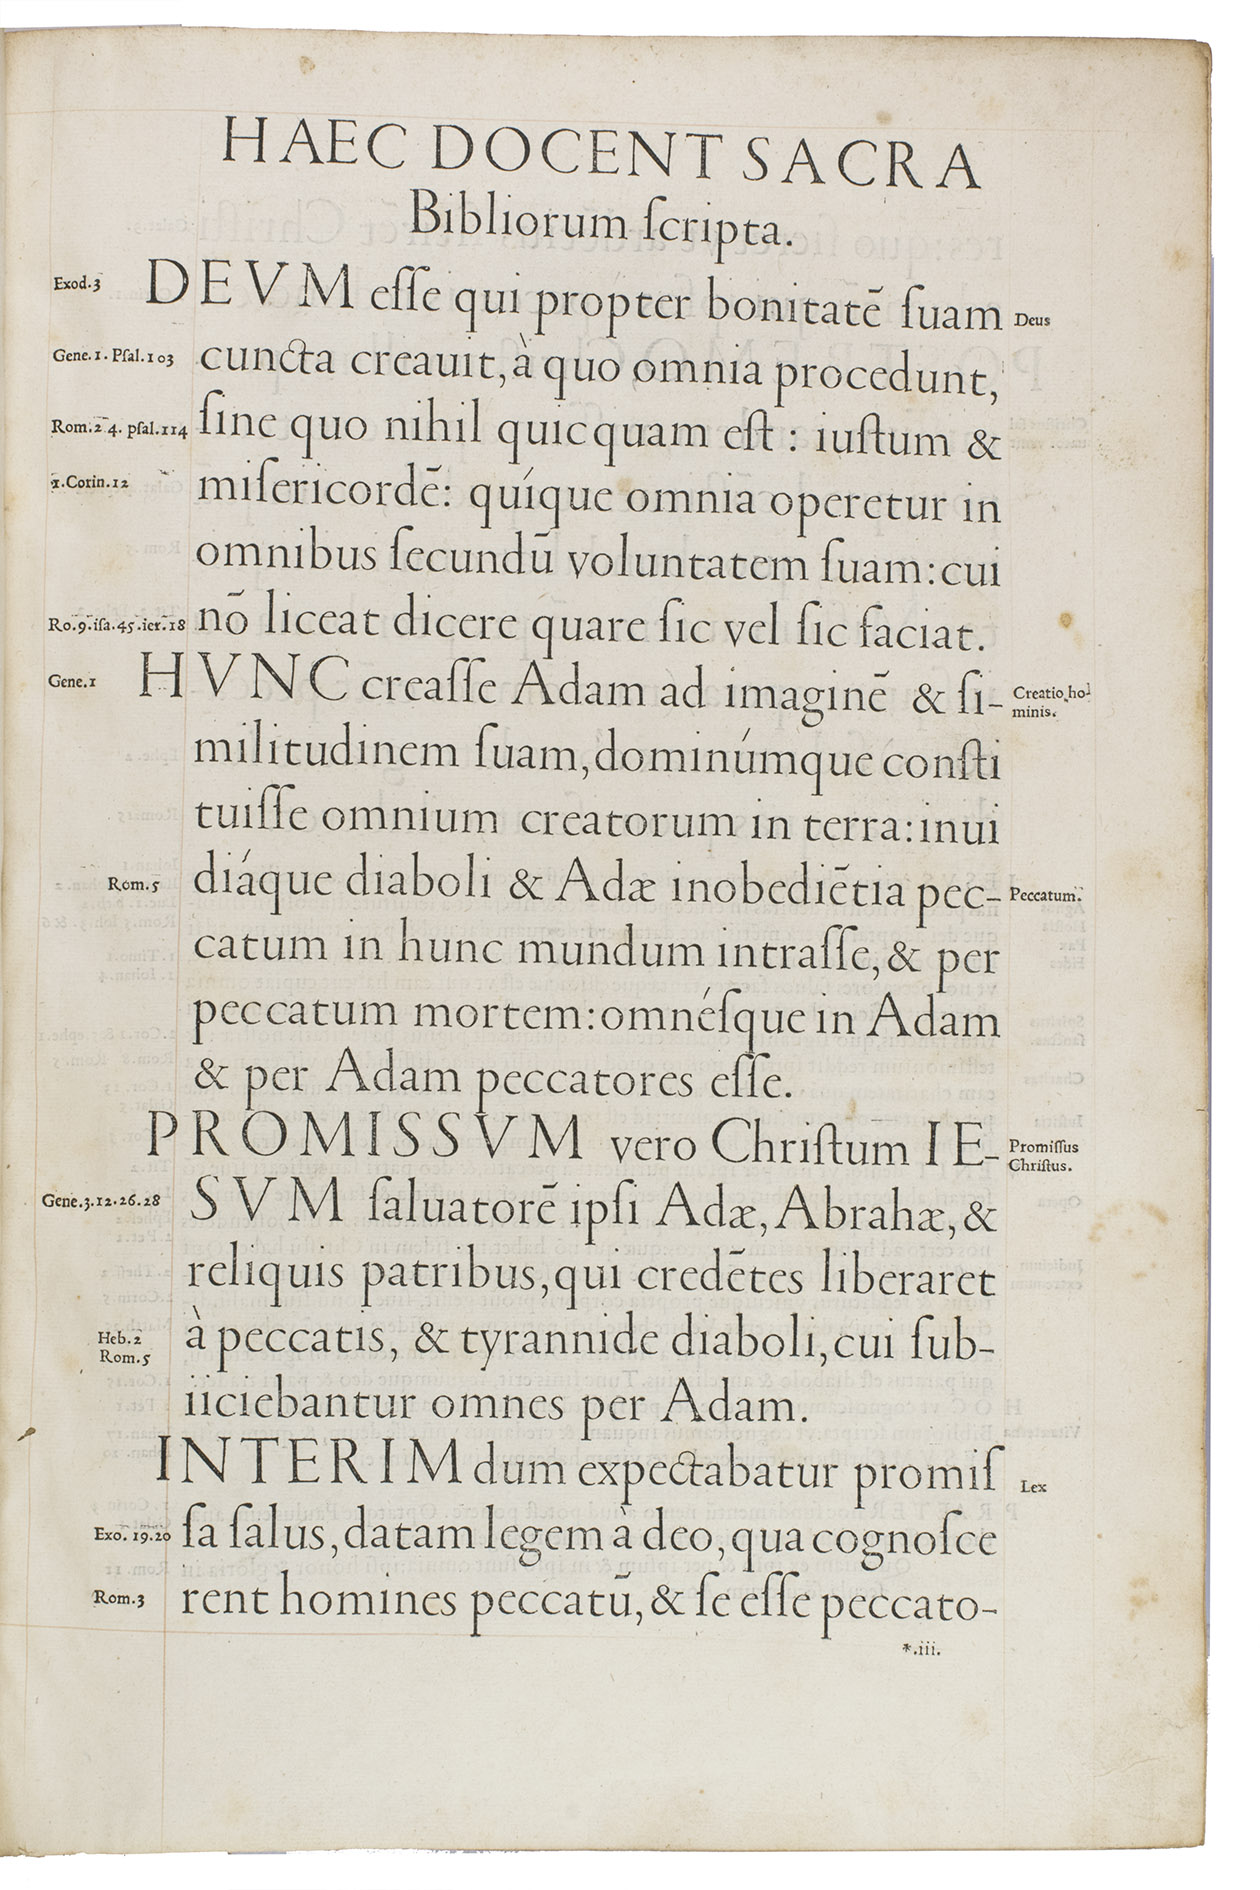 HAEC DOCENT SACRA
Bibliorum ſcripta.
Exod.3 DEVM eſſe qui propter bonitatē ſuam Deus
Gene.1. Pſal.103 cuncta creauit, à quo omnia procedunt,
Rom.2 4. pſal.114 ſine quo nihil quicquam eſt : iuſtum &
1.Corin.12 miſericordē: quíque omnia operetur in
omnibus ſecundū voluntatem ſuam: cui
Ro.9.iſa.45.ier.18 nō liceat dicere quare ſic vel ſic faciat.
Gene.1 HVNC creaſſe Adam ad imaginē & ſi- Creatio ho
minis.
militudinem ſuam, dominúmque conſti
tuiſſe omnium creatorum in terra: inui
Rom.5 diáque diaboli & Adæ inobediētia pec- Peccatum.
catum in hunc mundum intraſſe, & per
peccatum mortem: omnéſque in Adam
& per Adam peccatores eſſe.
PROMISSVM vero Chriſtum IE- Promiſſus
Chriſtus.
Gene.3.12.26.28 SVM ſaluatorē ipſi Adæ, Abrahæ, &
reliquis patribus, qui credētes liberaret
Heb.2 à peccatis, & tyrannide diaboli, cui ſub-
Rom.5
iiciebantur omnes per Adam.
INTERIM dum expectabatur promiſ Lex
Exo. 19.20 ſa ſalus, datam legem à deo, qua cognoſce
Rom.3 rent homines peccatū, & ſe eſſe peccato-
*.iii.